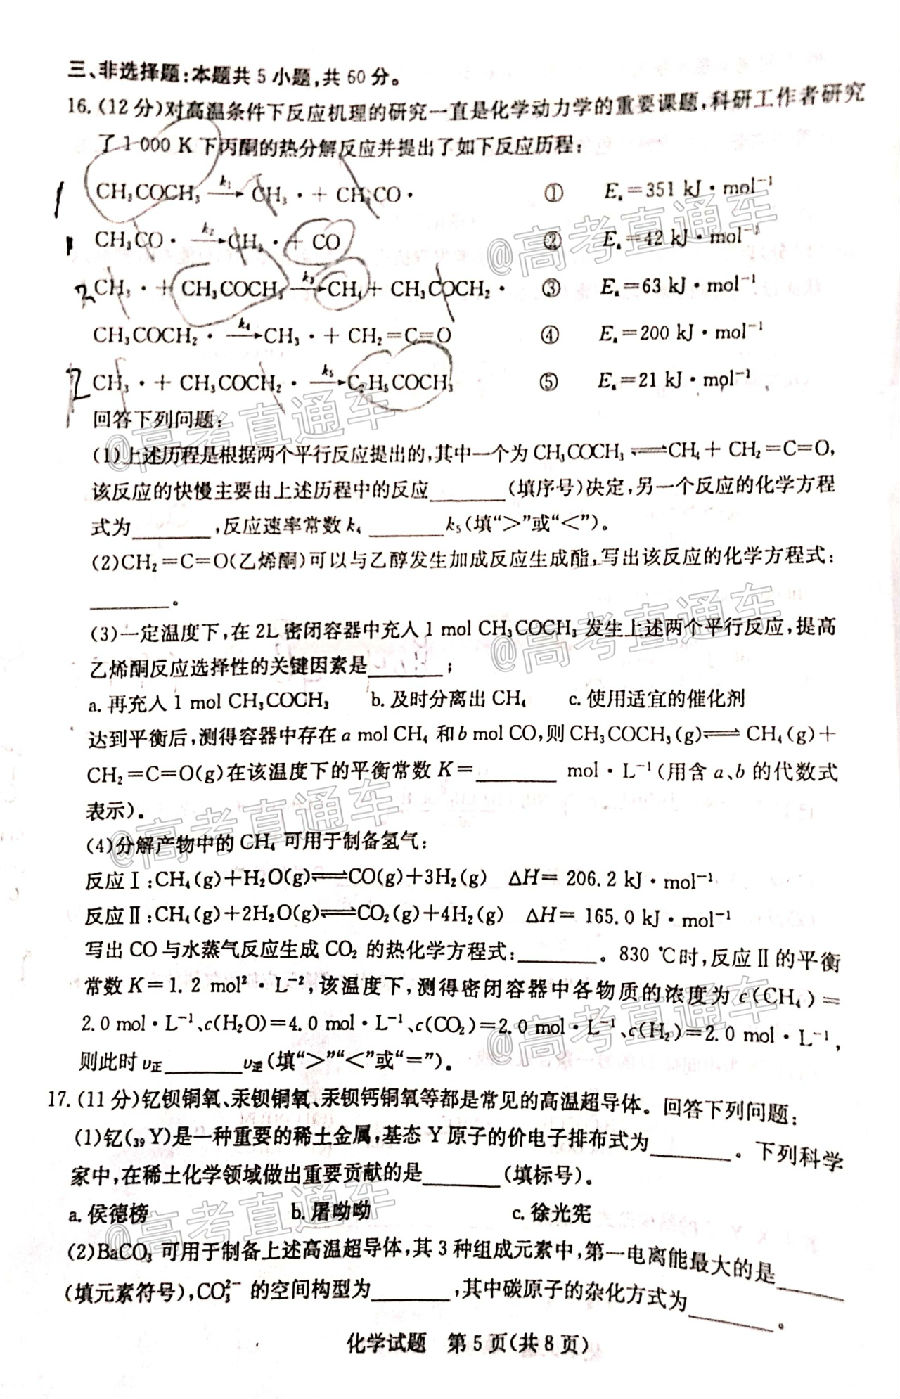 三、非选择题：本题共5小题，共60分。
16.(12分)对高温条件下反应机理的研究一直是化学动力学的重要课题，科研工作者研究
了1 000 K下丙酮的热分解反应并提出了如下反应历程：
1 CH₃COCH₃ —k₁→ CH₃· + CH₃CO· ① Eₐ=351 kJ·mol⁻¹
1 CH₃CO· —k₂→ CH₃· + CO ② Eₐ=42 kJ·mol⁻¹
2 CH₃· + CH₃COCH₃ —k₃→ CH₄ + CH₃COCH₂· ③ Eₐ=63 kJ·mol⁻¹
CH₃COCH₂· —k₄→ CH₃· + CH₂=C=O ④ Eₐ=200 kJ·mol⁻¹
2 CH₃· + CH₃COCH₂· —k₅→ C₂H₅COCH₃ ⑤ Eₐ=21 kJ·mol⁻¹
回答下列问题：
(1)上述历程是根据两个平行反应提出的，其中一个为CH₃COCH₃⇌CH₄ + CH₂=C=O，
该反应的快慢主要由上述历程中的反应______(填序号)决定，另一个反应的化学方程
式为______，反应速率常数k₄______k₅(填“>”或“<”)。
(2)CH₂=C=O(乙烯酮)可以与乙醇发生加成反应生成酯，写出该反应的化学方程式：
______。
(3)一定温度下，在2L密闭容器中充入1 mol CH₃COCH₃发生上述两个平行反应，提高
乙烯酮反应选择性的关键因素是______；
a.再充入1 mol CH₃COCH₃ b.及时分离出CH₄ c.使用适宜的催化剂
达到平衡后，测得容器中存在a mol CH₄和b mol CO，则CH₃COCH₃(g)⇌CH₄(g)+
CH₂=C=O(g)在该温度下的平衡常数K=______ mol·L⁻¹(用含a、b的代数式
表示)。
(4)分解产物中的CH₄可用于制备氢气：
反应Ⅰ：CH₄(g)+H₂O(g)⇌CO(g)+3H₂(g) ΔH= 206.2 kJ·mol⁻¹
反应Ⅱ：CH₄(g)+2H₂O(g)⇌CO₂(g)+4H₂(g) ΔH= 165.0 kJ·mol⁻¹
写出CO与水蒸气反应生成CO₂的热化学方程式：______。830 ℃时，反应Ⅱ的平衡
常数K=1.2 mol²·L⁻²，该温度下，测得密闭容器中各物质的浓度为c(CH₄)=
2.0 mol·L⁻¹、c(H₂O)=4.0 mol·L⁻¹、c(CO₂)=2.0 mol·L⁻¹、c(H₂)=2.0 mol·L⁻¹，
则此时υ正______υ逆(填“>”“<”或“=”)。
17.(11分)钇钡铜氧、汞钡铜氧、汞钡钙铜氧等都是常见的高温超导体。回答下列问题：
(1)钇(₃₉Y)是一种重要的稀土金属，基态Y原子的价电子排布式为______。下列科学
家中，在稀土化学领域做出重要贡献的是______(填标号)。
a.侯德榜 b.屠呦呦 c.徐光宪
(2)BaCO₃可用于制备上述高温超导体，其3种组成元素中，第一电离能最大的是______
(填元素符号)，CO₃²⁻的空间构型为______，其中碳原子的杂化方式为______。
化学试题 第5页(共8页)
@高考直通车
@高考直通车
@高考直通车
@高考直通车
@高考直通车
@高考直通车